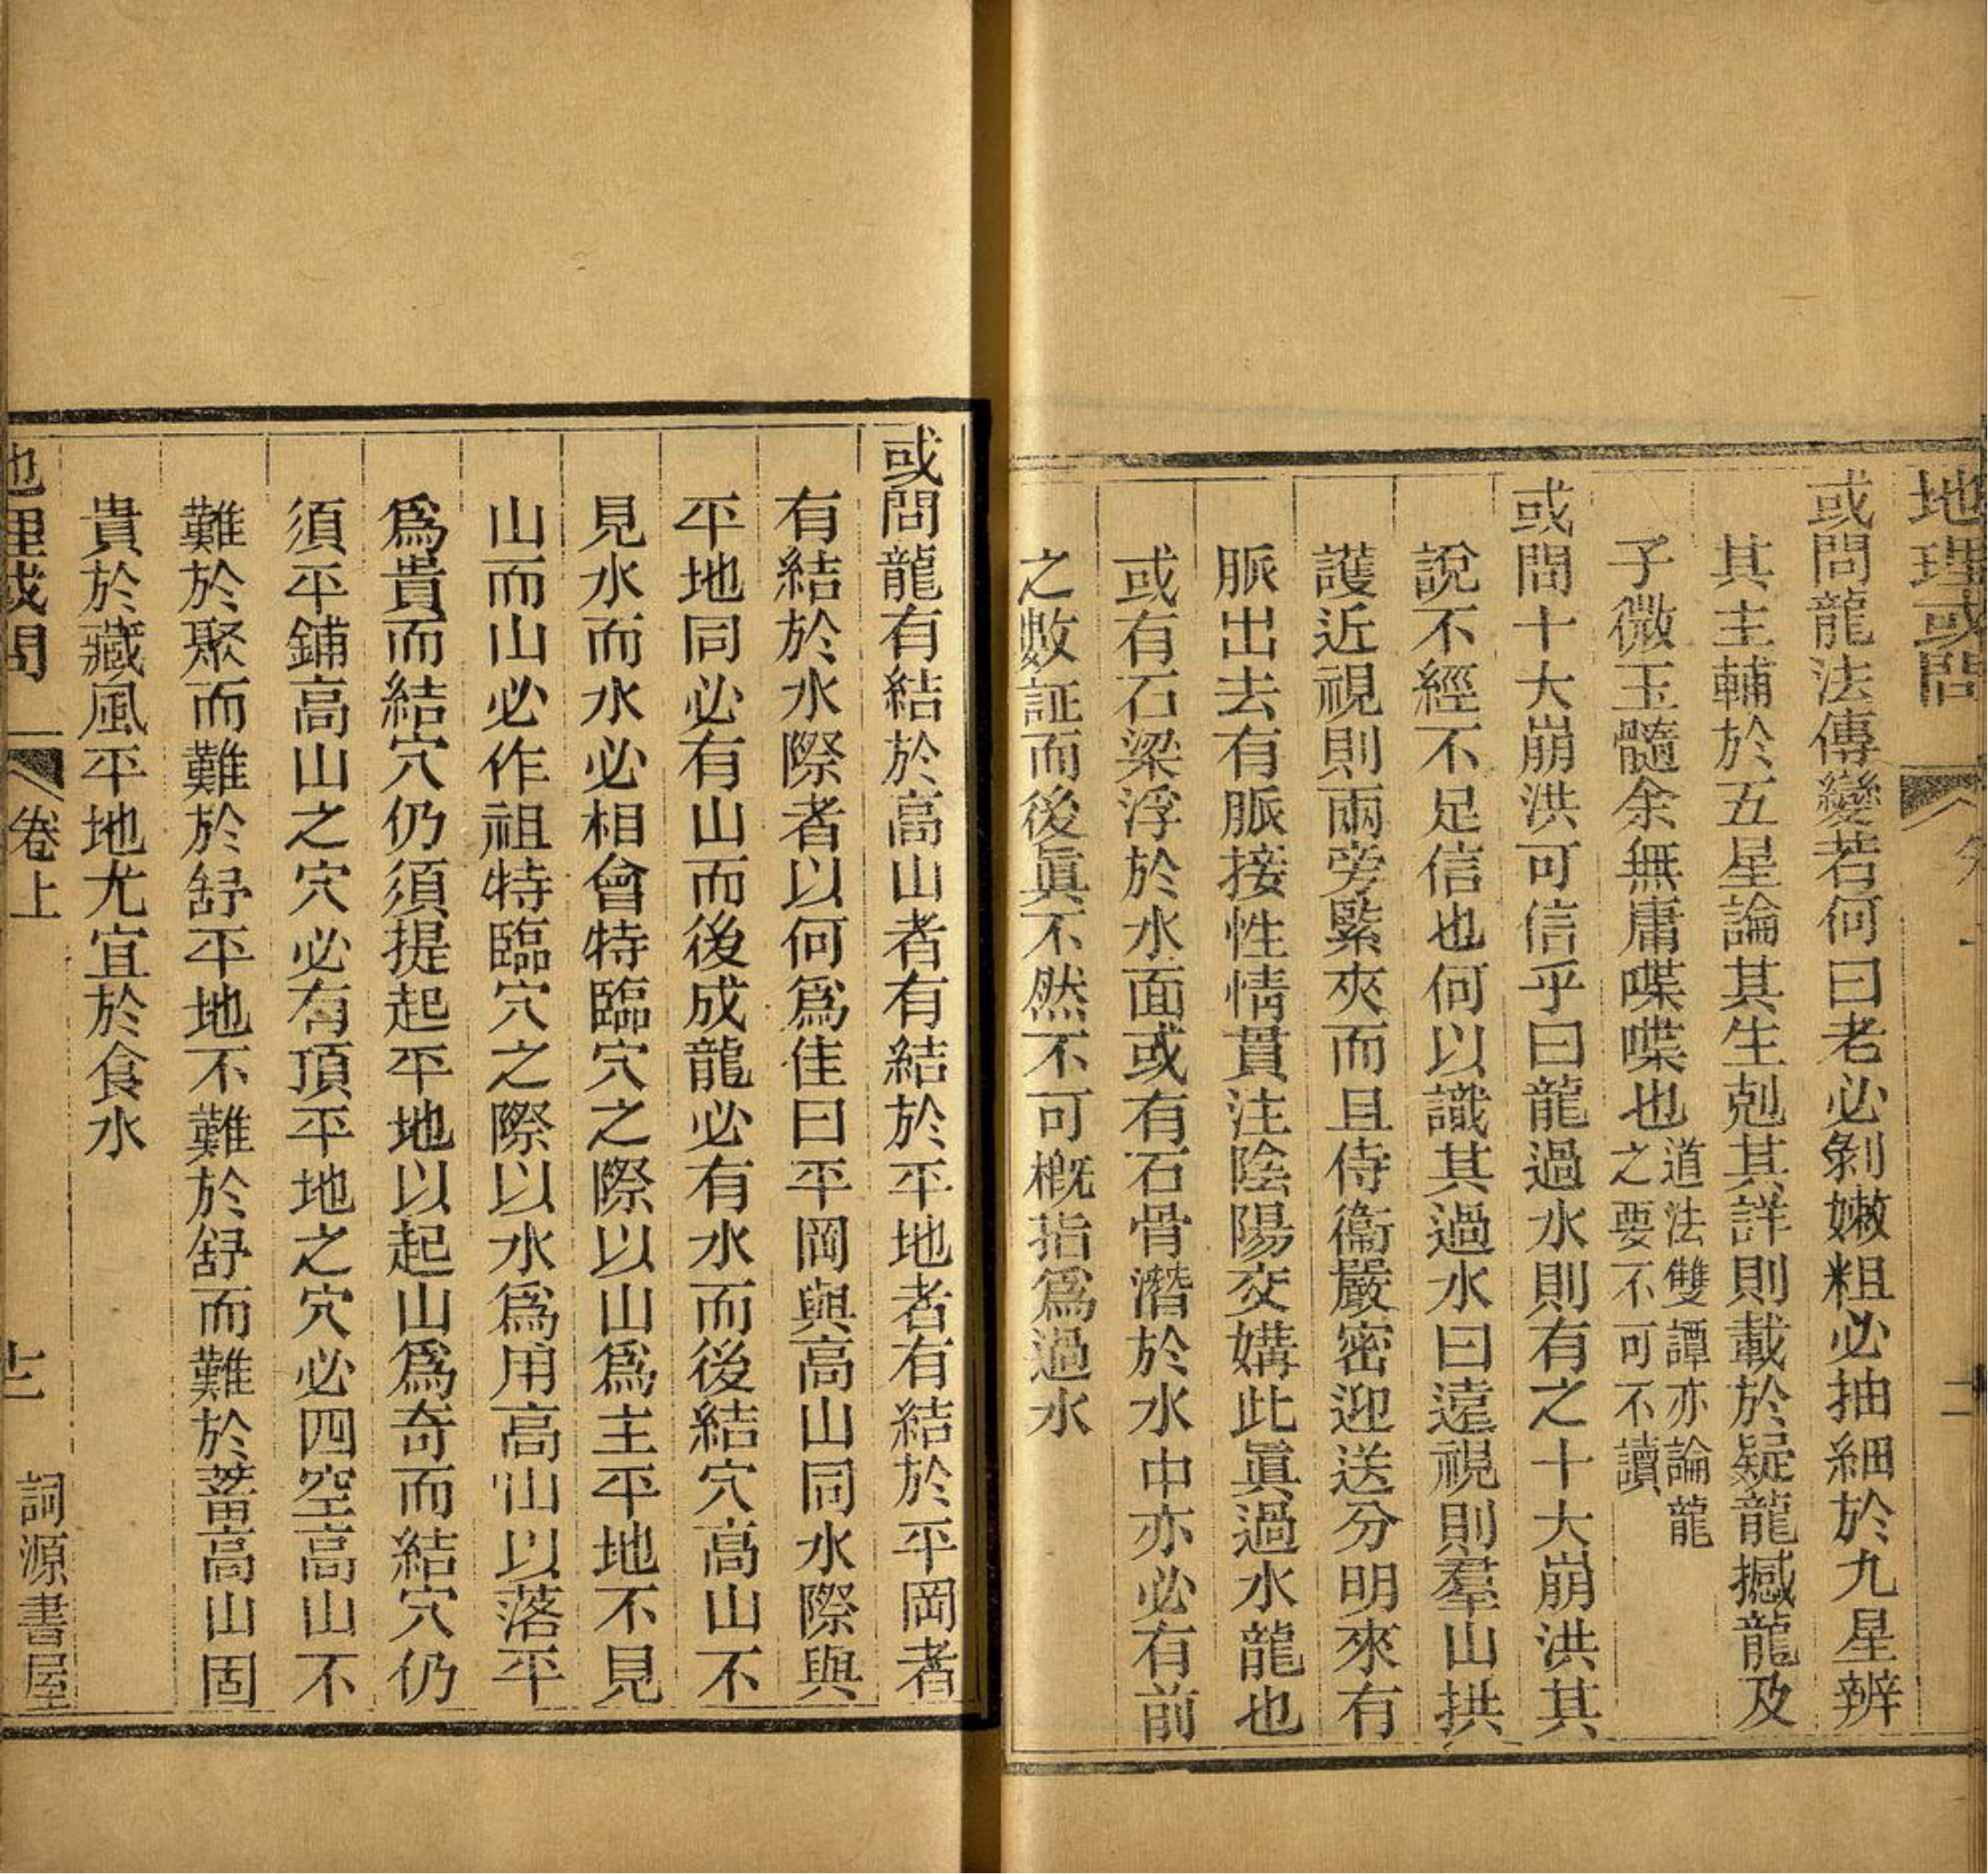 地理或問
或問龍法傳變若何曰老必剝嫩粗必抽細於九星辨
其主輔於五星論其生剋其詳則載於疑龍撼龍及
子微玉髓余無庸喋喋也道法雙譚亦論龍
之要不可不讀
或問十大崩洪可信乎曰龍過水則有之十大崩洪其
說不經不足信也何以識其過水曰遠視則羣山拱
護近視則兩旁緊夾而且侍衞嚴密迎送分明來有
脈出去有脈接性情貫注陰陽交媾此眞過水龍也
或有石梁浮於水面或有石骨潛於水中亦必有前
之數証而後眞不然不可概指爲過水
或問龍有結於高山者有結於平地者有結於平岡者
有結於水際者以何爲佳曰平岡與高山同水際與
平地同必有山而後成龍必有水而後結穴高山不
見水而水必相會特臨穴之際以山爲主平地不見
山而山必作祖特臨穴之際以水爲用高山以落平
爲貴而結穴仍須提起平地以起山爲奇而結穴仍
須平鋪高山之穴必有頂平地之穴必四空高山不
難於聚而難於舒平地不難於舒而難於蓄高山固
貴於藏風平地尤宜於食水
地理或問 卷上 十二 詞源書屋